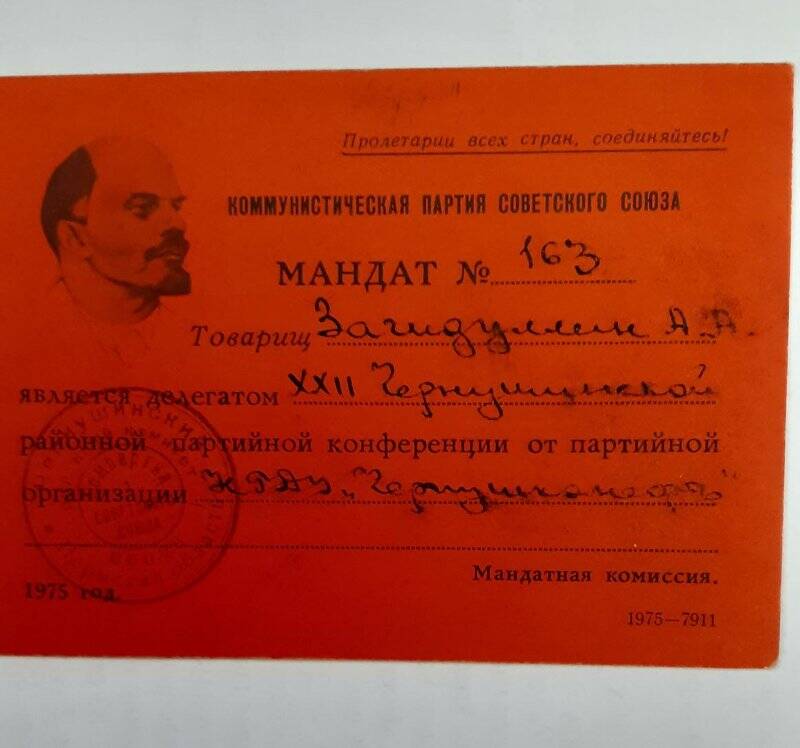 Пролетарии всех стран, соединяйтесь!
КОММУНИСТИЧЕСКАЯ ПАРТИЯ СОВЕТСКОГО СОЮЗА
МАНДАТ № 163
Товарищ Загидуллин А.А.
является делегатом XXII Чернушинской
районной партийной конференции от партийной
организации НГДУ „Чернушканефть"
Мандатная комиссия.
1975 год.
1975—7911